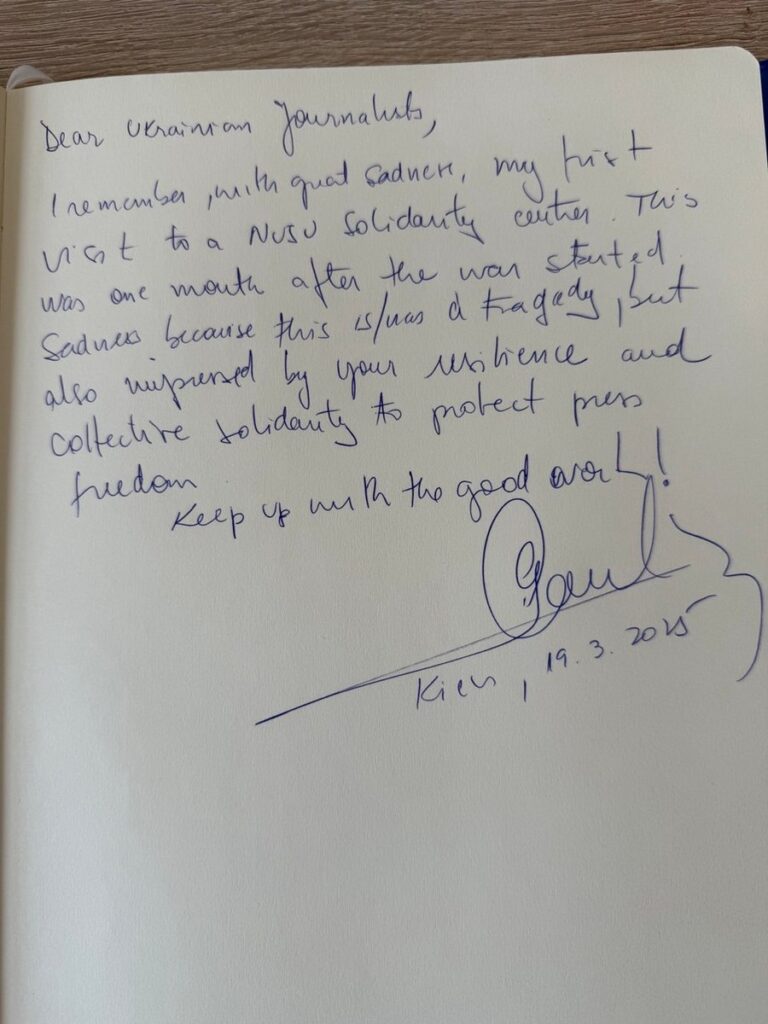 Dear Ukrainian Journalists,
I remember, with great sadness, my first
visit to a NUJU Solidarity center. This
was one month after the war started.
Sadness because this is/was a tragedy, but
also impressed by your resilience and
collective solidarity to protect press
freedom
Keep up with the good work!
Kiev, 19.3.2025